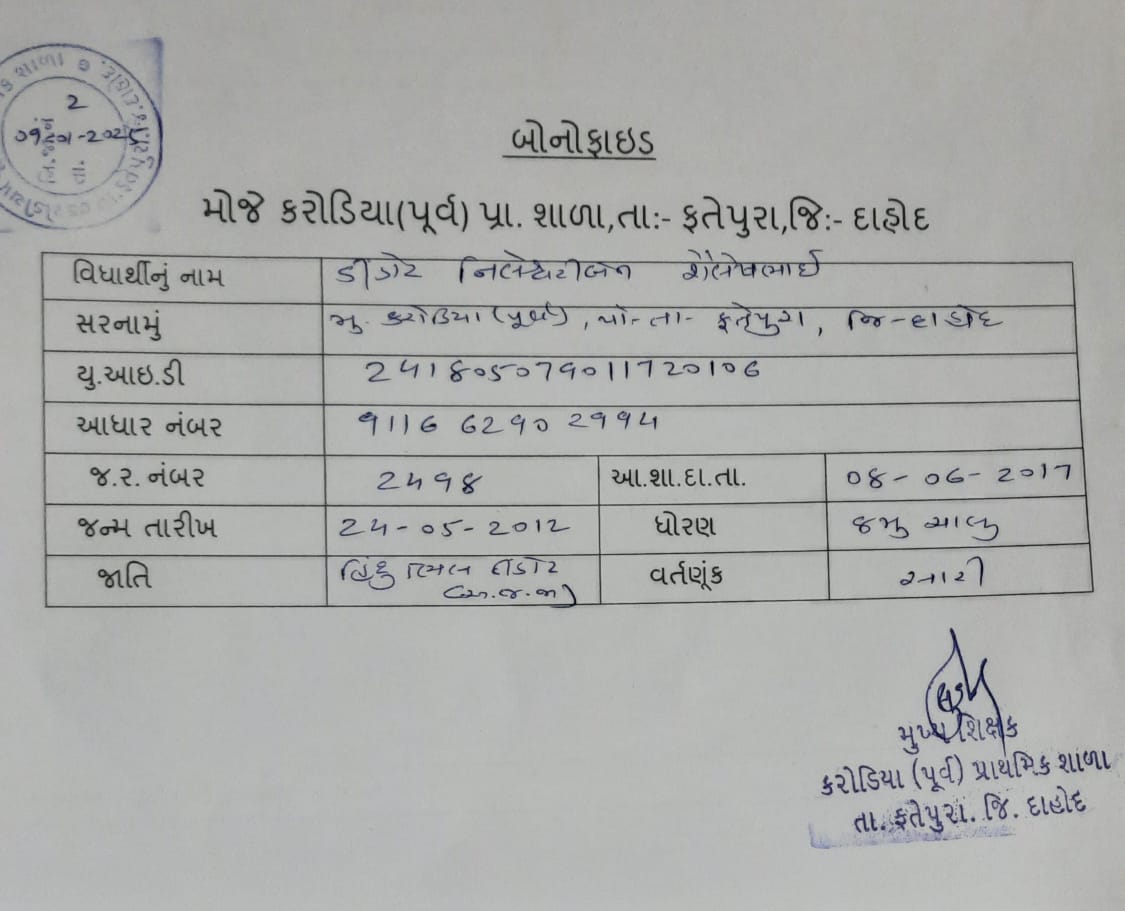 2
બોનોફાઇડ
મોજે કરોડિયા(પૂર્વ) પ્રા. શાળા,તા:- ફતેપુરા,જિ:- દાહોદ
વિધાર્થીનું નામ ડીંડોર શૈલેષભાઈ
સરનામું મુ. કરોડિયા (પૂર્વ), પો- તા- ફતેપુરા, જિ-દાહોદ
યુ.આઇ.ડી 241805079011720106
આધાર નંબર 9116 6290 2994
જ.ર. નંબર 2498 આ.શા.દા.તા. 08-06-2017
જન્મ તારીખ 24-05-2012 ધોરણ ૭મુ ચાલુ
જાતિ હિંદુ (અ.જ.જા) વર્તણૂંક સારી
મુખ્ય શિક્ષક
કરોડિયા (પૂર્વ) પ્રાથમિક શાળા
તા. ફતેપુરા. જિ. દાહોદ